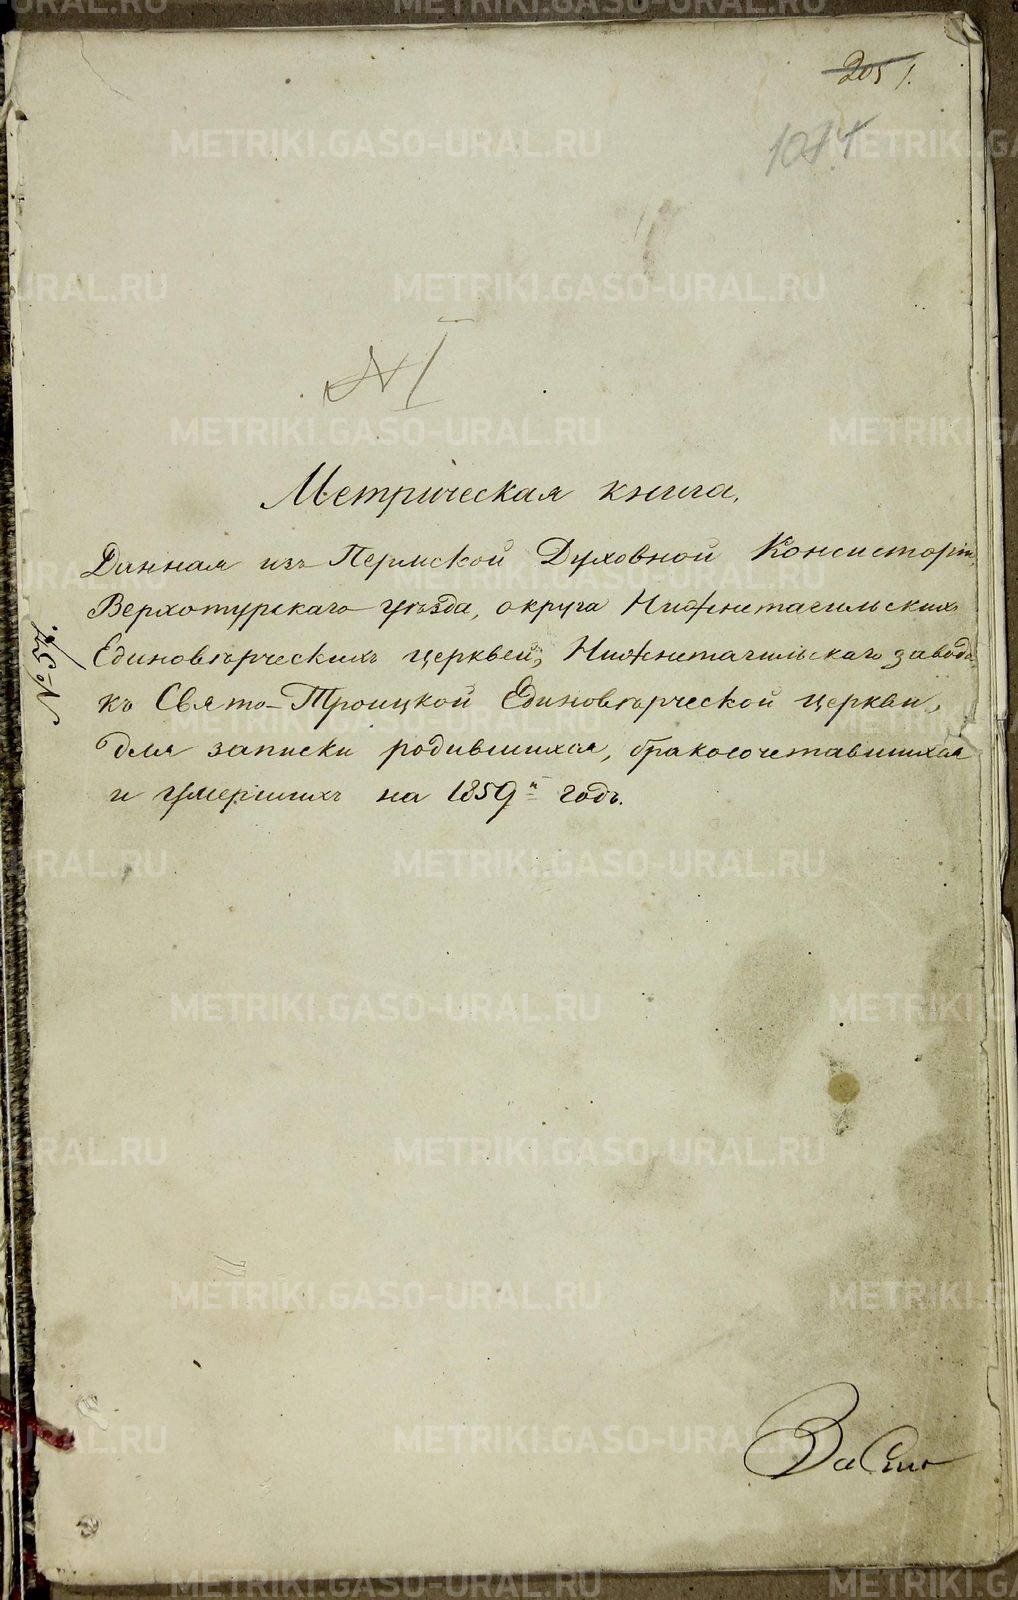 205 1.
№ I
Метрическая книга,
Данная изъ Пермской Духовной Консисторіи,
Верхотурскаго уѣзда, округа Нижнетагильскихъ
Единовѣрческихъ церквей, Нижнетагильскаго завода
къ Свято-Троицкой Единовѣрческой церкви,
для записки родившихся, бракосочетавшихся
и умершихъ на 1859й годъ.
METRIKI.GASO-URAL.RU